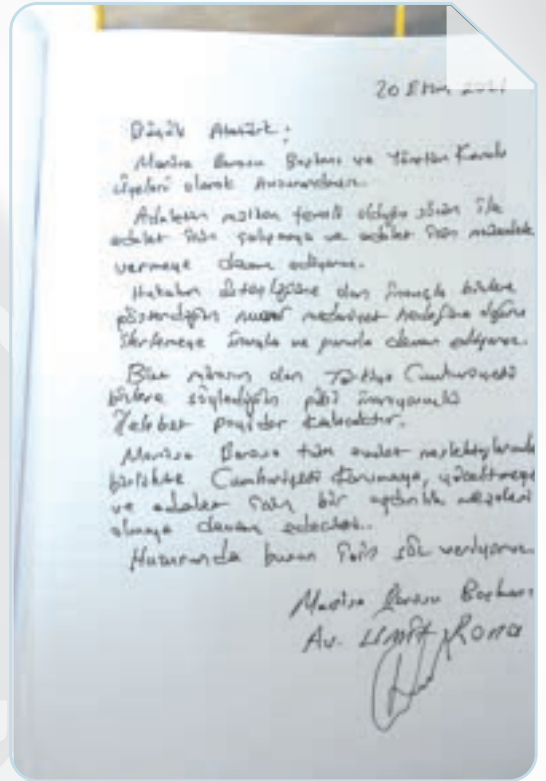 20 Ekim 2021
Büyük Atatürk;
Manisa Barosu Başkanı ve Yönetim Kurulu
üyeleri olarak huzurundayız.
Adaletin mülkün temeli olduğu sözün ile
adalet için çalışmaya ve adalet için mücadele
vermeye devam ediyoruz.
Hukukun üstünlüğüne olan inançla bizlere
gösterdiğin medeniyet hedefine doğru
ilerlemeye inançla ve gururla devam ediyoruz.
Bize mirasın olan Türkiye Cumhuriyeti
bizlere söylediğin gibi inanıyoruz ki
İlelebet payidar kalacaktır.
Manisa Barosu tüm avukat meslektaşlarımla
birlikte Cumhuriyeti korumaya, yüceltmeye
ve adalet için bir aydınlık meşalesi
olmaya devam edecektir.
Huzurunda bunun için söz veriyoruz.
Manisa Barosu Başkanı
Av. Ümit Rona